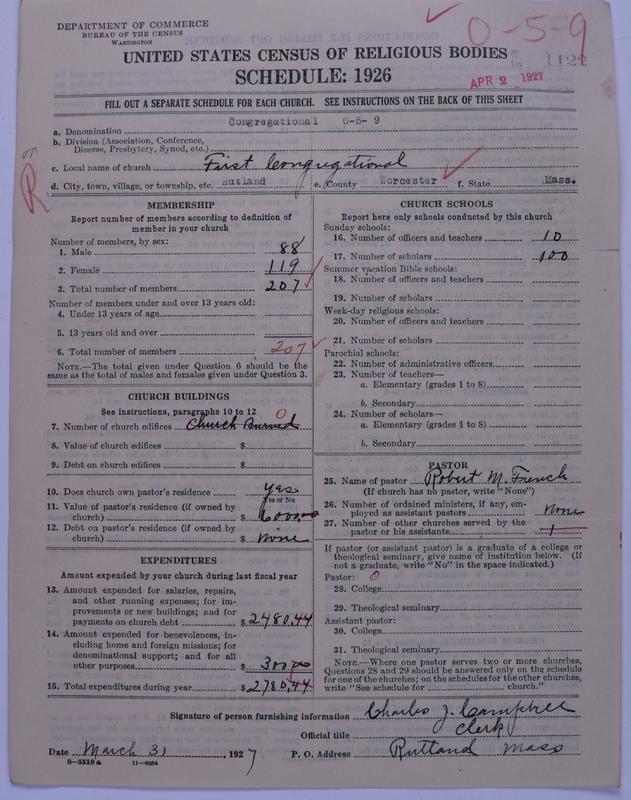 DEPARTMENT OF COMMERCE
BUREAU OF THE CENSUS
WASHINGTON
0-5-9
UNITED STATES CENSUS OF RELIGIOUS BODIES
1122
SCHEDULE: 1926
APR 2 1927
FILL OUT A SEPARATE SCHEDULE FOR EACH CHURCH. SEE INSTRUCTIONS ON THE BACK OF THIS SHEET
a. Denomination Congregational 0-5-9
b. Division (Association, Conference, Diocese, Presbytery, Synod, etc.)
c. Local name of church First Congregational
d. City, town, village, or township, etc. Rutland e. County Worcester f. State Mass.
R
MEMBERSHIP
Report number of members according to definition of member in your church
Number of members, by sex:
1. Male 88
2. Female 119
3. Total number of members 207
Number of members under and over 13 years old:
4. Under 13 years of age
5. 13 years old and over
6. Total number of members 207
NOTE.—The total given under Question 6 should be the same as the total of males and females given under Question 3.
CHURCH BUILDINGS
See instructions, paragraphs 10 to 12
7. Number of church edifices Church Burned 0
8. Value of church edifices $
9. Debt on church edifices $
10. Does church own pastor's residence Yes
Yes or No
11. Value of pastor's residence (if owned by church) $ 6000.00
12. Debt on pastor's residence (if owned by church) $ None
EXPENDITURES
Amount expended by your church during last fiscal year
13. Amount expended for salaries, repairs, and other running expenses; for improvements or new buildings; and for payments on church debt $ 2480.44
14. Amount expended for benevolences, including home and foreign missions; for denominational support; and for all other purposes $ 300.00
15. Total expenditures during year $ 2780.44
CHURCH SCHOOLS
Report here only schools conducted by this church
Sunday schools:
16. Number of officers and teachers 10
17. Number of scholars 100
Summer vacation Bible schools:
18. Number of officers and teachers
19. Number of scholars
Week-day religious schools:
20. Number of officers and teachers
21. Number of scholars
Parochial schools:
22. Number of administrative officers
23. Number of teachers—
a. Elementary (grades 1 to 8)
b. Secondary
24. Number of scholars—
a. Elementary (grades 1 to 8)
b. Secondary
PASTOR
25. Name of pastor Robert M. French
(If church has no pastor, write "None")
26. Number of ordained ministers, if any, employed as assistant pastors None
27. Number of other churches served by the pastor or his assistants 1
If pastor (or assistant pastor) is a graduate of a college or theological seminary, give name of institution below. (If not a graduate, write "No" in the space indicated.)
Pastor: 0
28. College
29. Theological seminary
Assistant pastor:
30. College
31. Theological seminary
NOTE.—Where one pastor serves two or more churches, Questions 28 and 29 should be answered only on the schedule for one of the churches; on the schedules for the other churches, write "See schedule for church."
Signature of person furnishing information Charles J. Campbell
Official title Clerk
Date March 31, 1927 P. O. Address Rutland Mass
8-5518a 11-9054